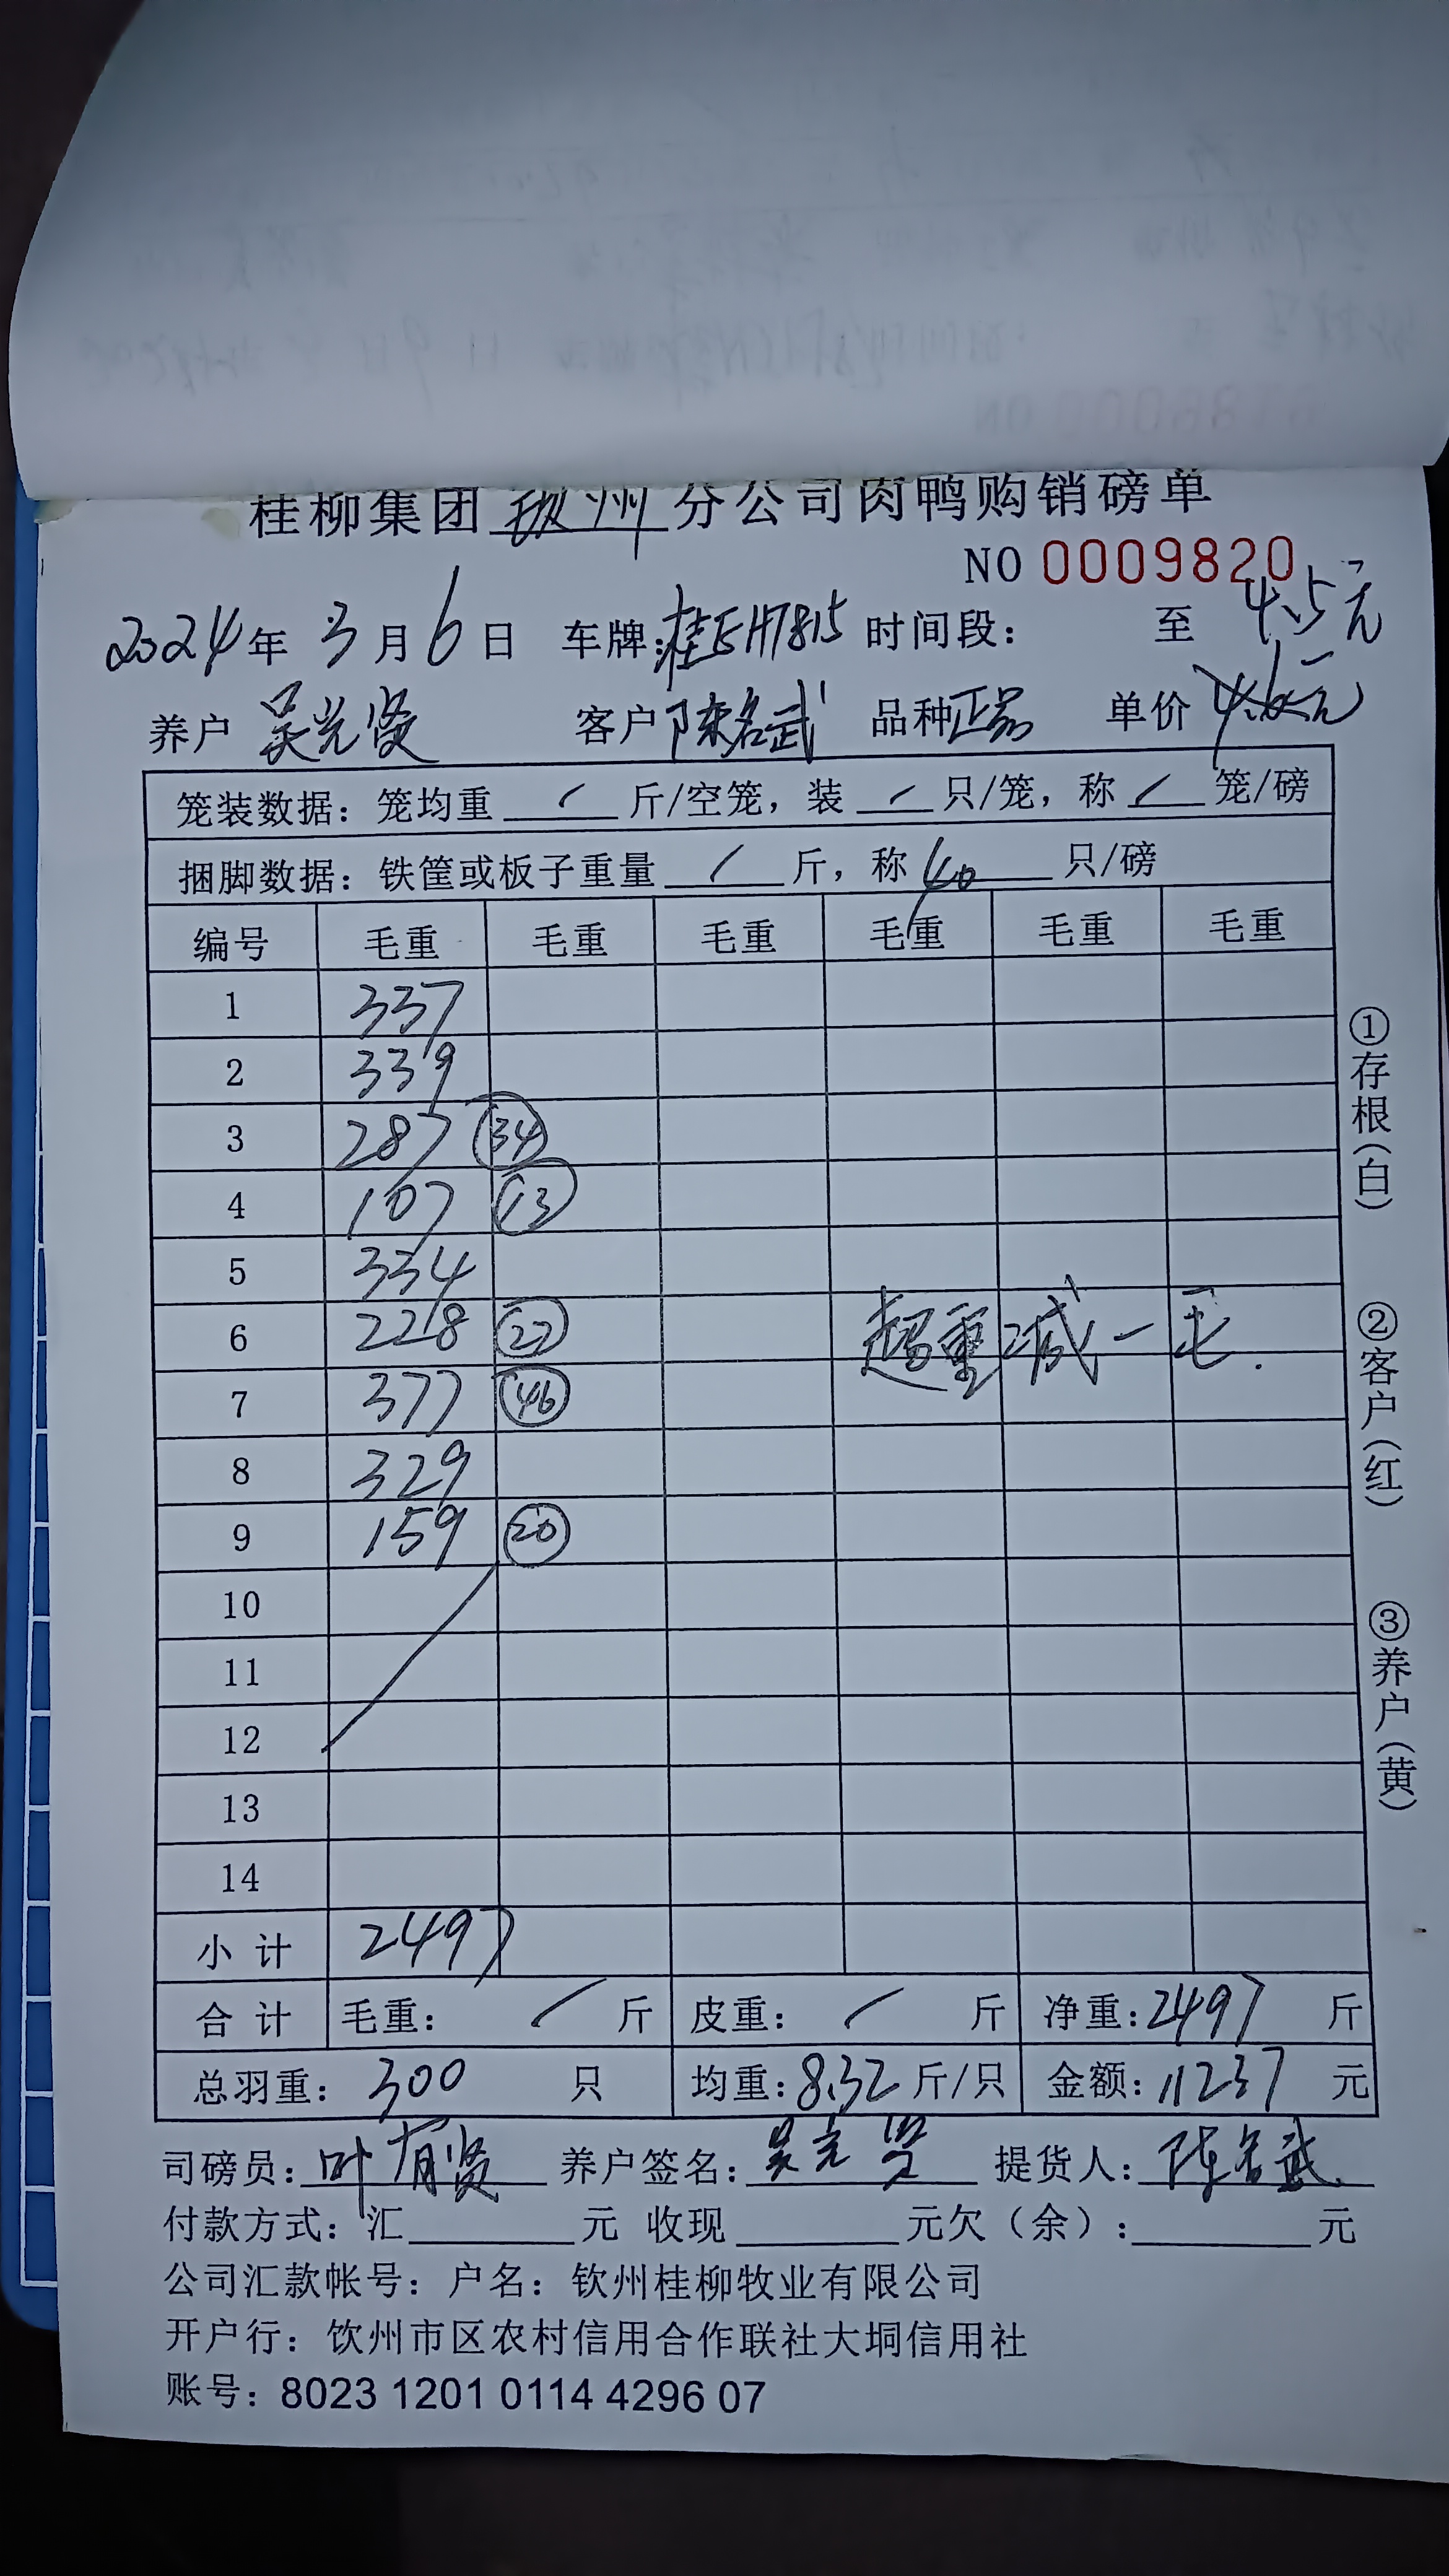 桂柳集团钦州分公司肉鸭购销磅单
NO 0009820
2024年 3月 6日 车牌:桂EH7815 时间段: 至 4.5元
养户 吴光贤 客户 陈名武 品种 正品 单价 4.6元
笼装数据: 笼均重 / 斤/空笼, 装 / 只/笼, 称 / 笼/磅
捆脚数据: 铁筐或板子重量 / 斤, 称 40 只/磅
编号 毛重 毛重 毛重 毛重 毛重 毛重
1 337
2 339
3 287 34
4 107 13
5 334
6 228 27
7 377 46
8 329
9 159 20
超重减一毛.
10
11
12
13
14
小计 2497
合计 毛重: / 斤 皮重: / 斤 净重:2497 斤
总羽重: 300 只 均重:8.32 斤/只 金额:11237 元
司磅员:叶有贤 养户签名:吴光贤 提货人:陈名武
付款方式: 汇 元 收现 元欠(余): 元
公司汇款帐号: 户名: 钦州桂柳牧业有限公司
开户行: 饮州市区农村信用合作联社大垌信用社
账号: 8023 1201 0114 4296 07
①存根(白)
②客户(红)
③养户(黄)